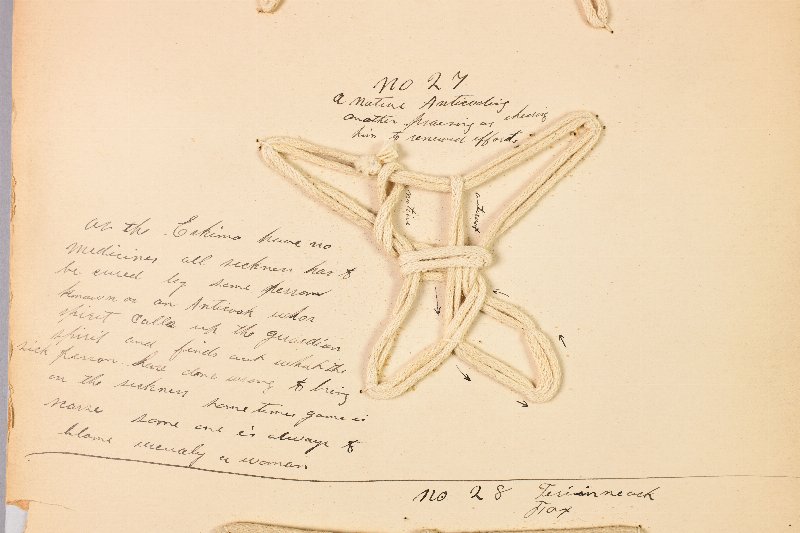 No 27
a native Anticooting
another praising or cheering
him to renewed efforts
native
anticoot
as the Eskimo have no
medicines all sickness has to
be cured by some person
known as an Anticook whos
spirit calls up the guardian
spirit and finds out what the
sick person have done wrong to bring
on the sickness some times game is
some one is always to
blame usually a woman
No 28 Teriinneack
Fox